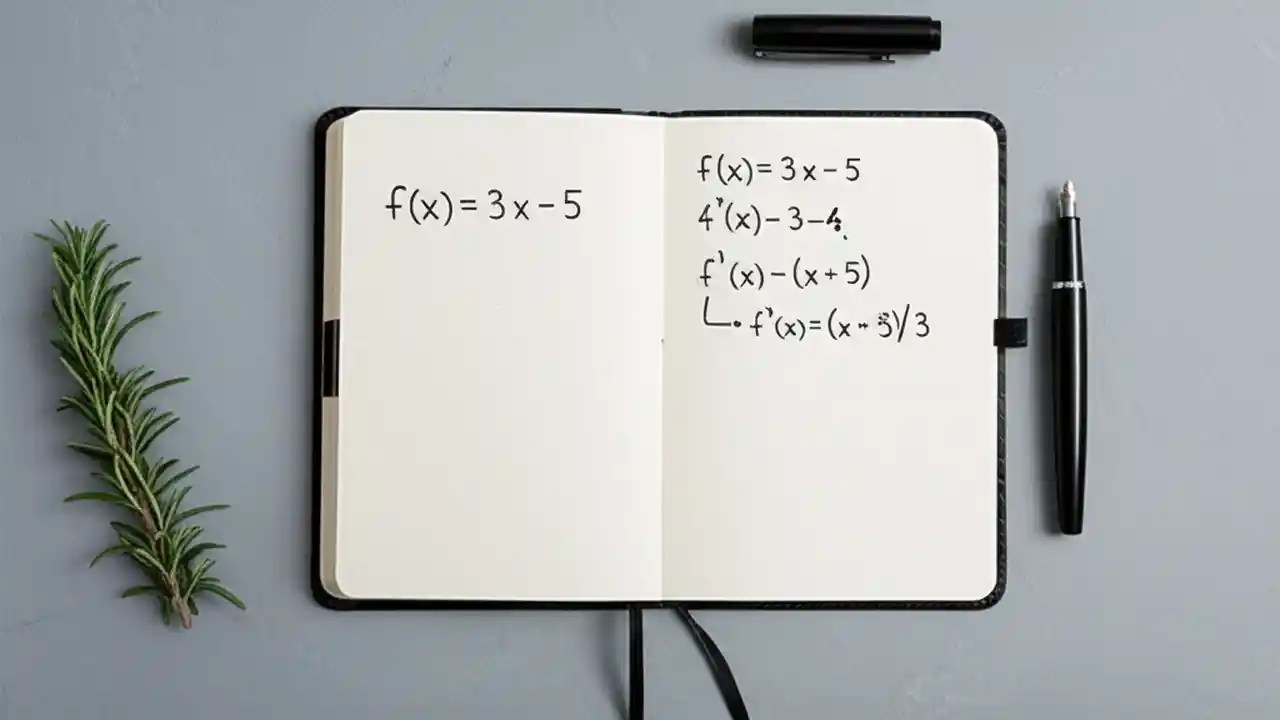 f(x) = 3x − 5
f(x) = 3x − 5
4'(x) − 3 −
f'(x) − (x + 5)
f'(x) = (x 3)/3